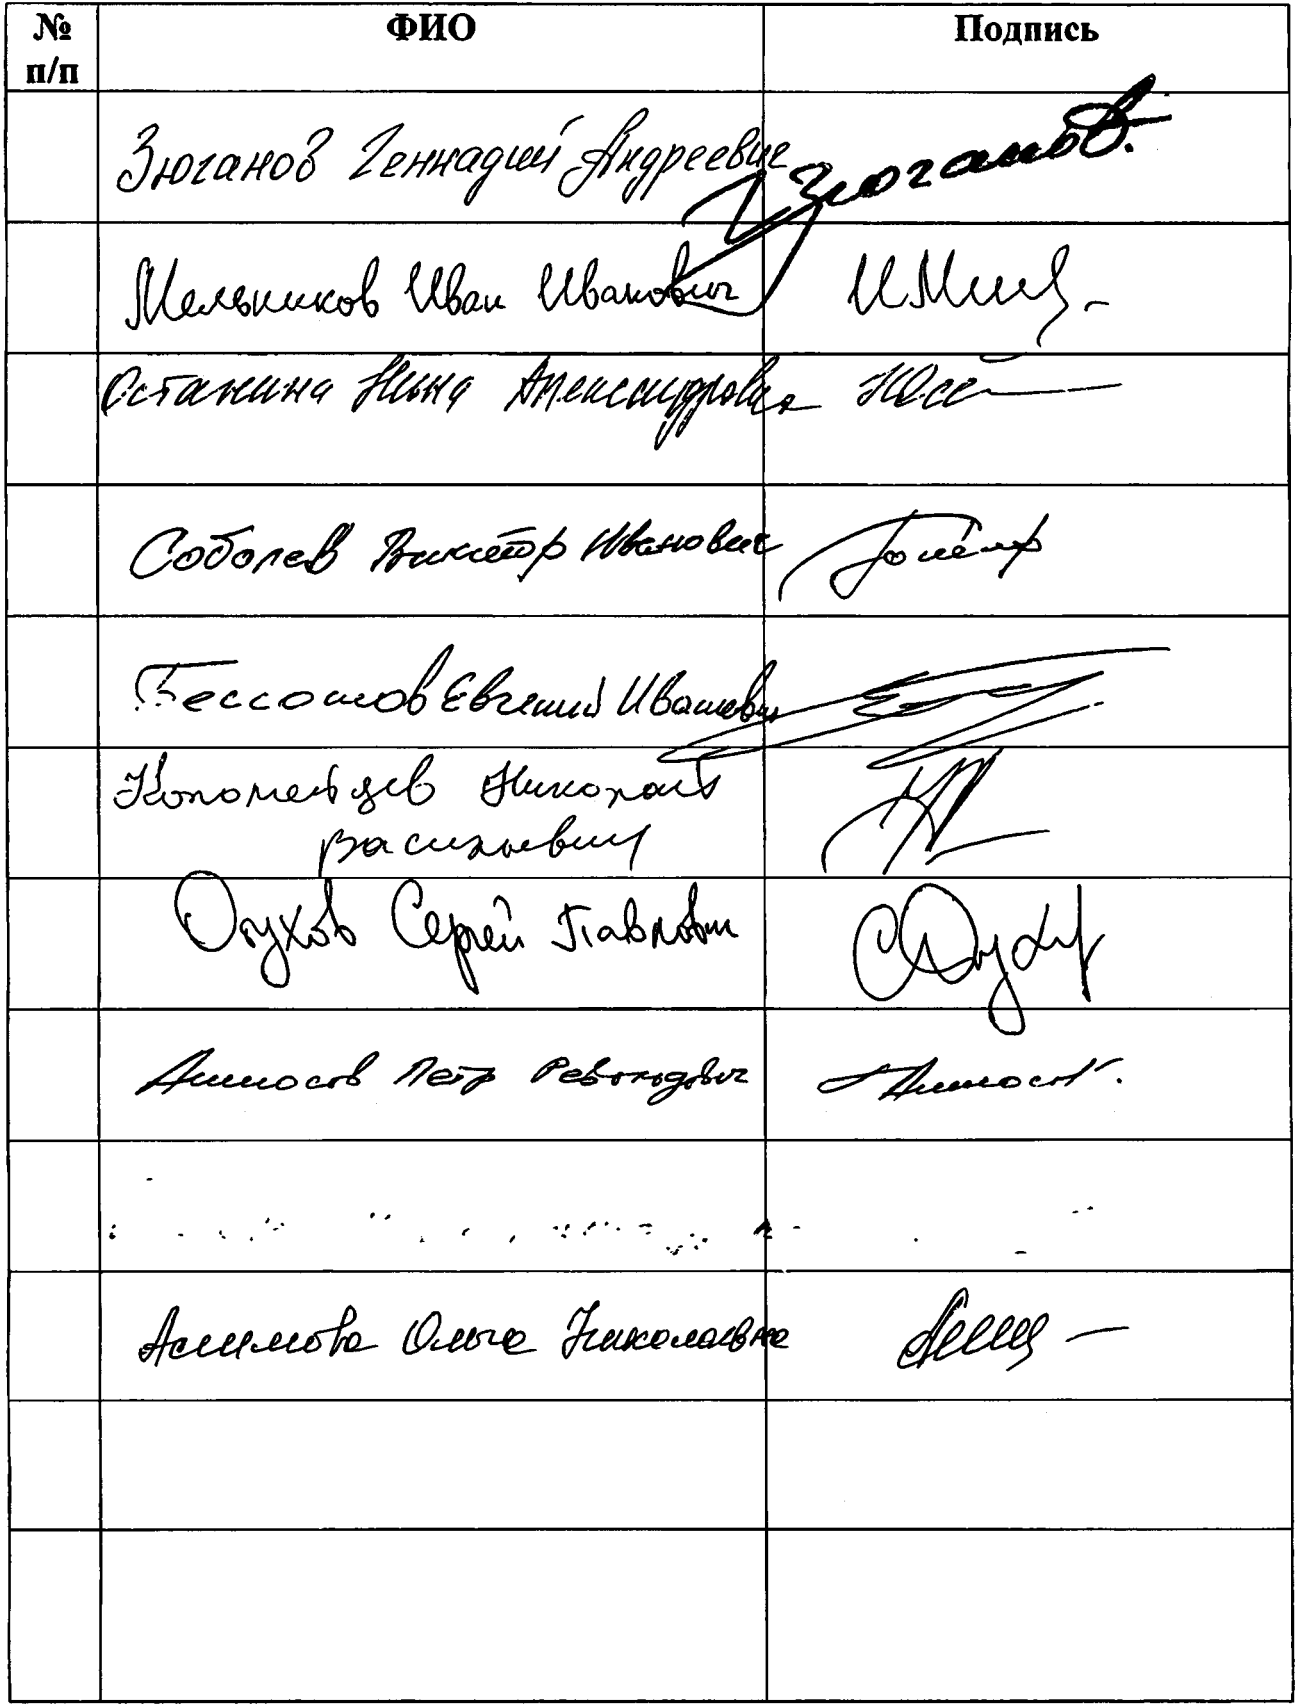 № ФИО Подпись
п/п
Зюганов Геннадий Андреевич Зюганов.
Мельников Иван Иванович
Останина Нина Александровна
Соболев Виктор Иванович
Бессонов Евгений Иванович
Коломейцев Николай
Васильевич
Обухов Сергей Павлович
Аммосов Петр Револьдович Аммосов.
Алимова Ольга Николаевна